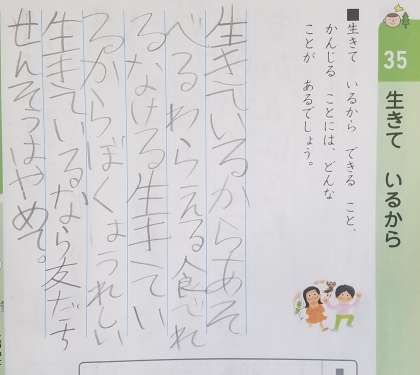 35
生きて いるから
■生きて いるから できる こと、
かんじる ことには、どんな
ことが あるでしょう。
生きているからあそ
べるわらえる食べれ
るなける生きてい
るからぼくはうれしい
生きているなら友だち
せんそうはやめて。